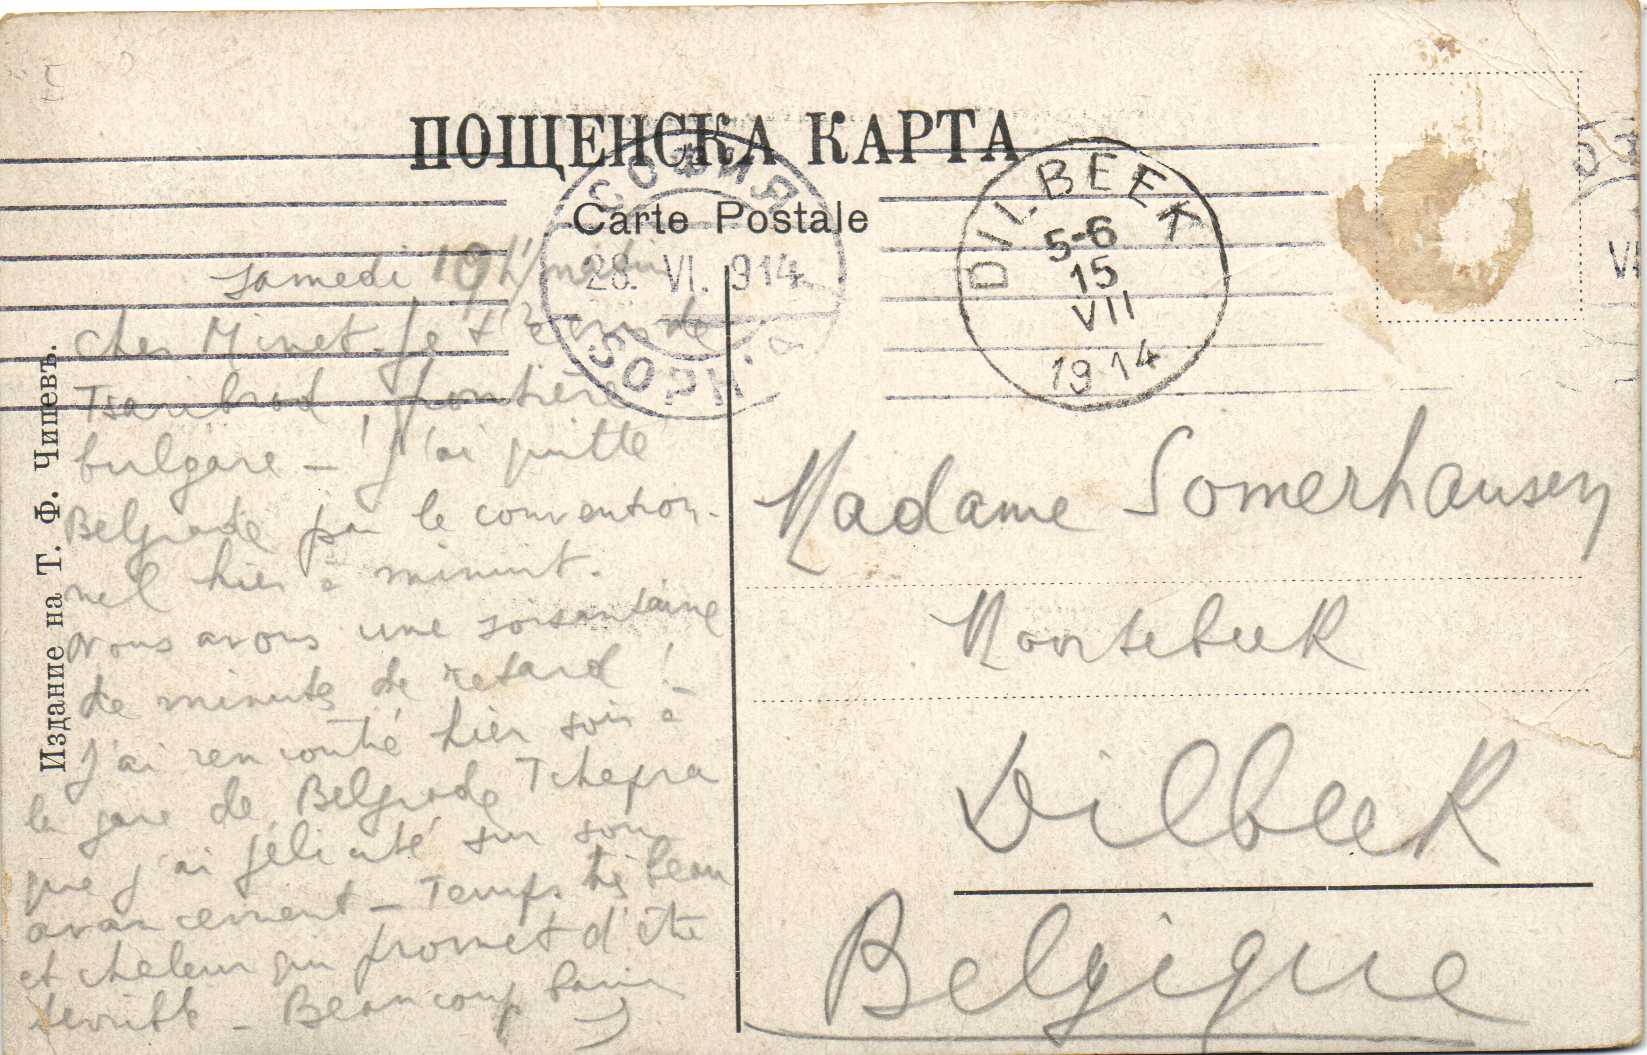 ПОЩЕНСКА КАРТА
Carte Postale
СОФИЯ
28. VI. 914
DILBEEK
5-6
15
VII
1914
Издание на Т. Ф. Чипевъ.
samedi 10h matin
Cher Minet. Je t'écris de
Tsaribrod, frontière
bulgare – j'ai quitté
Belgrade par le convention-
nel hier à minuit.
Nous avons une soixantaine
de minutes de retard ! –
J'ai rencontré hier soir à
la gare de Belgrade Tchapra
que j'ai félicité sur son
avancement – Temps très beau
et chaleur qui promet d'être
terrible – Beaucoup
Madame Somerhausen
Moortebeek
Dilbeek
Belgique